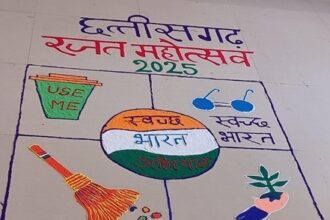 छत्तीसगढ़
रजत महोत्सव
2025
USE
ME
स्वच्छ
भारत
अभियान
स्वच्छ
भारत